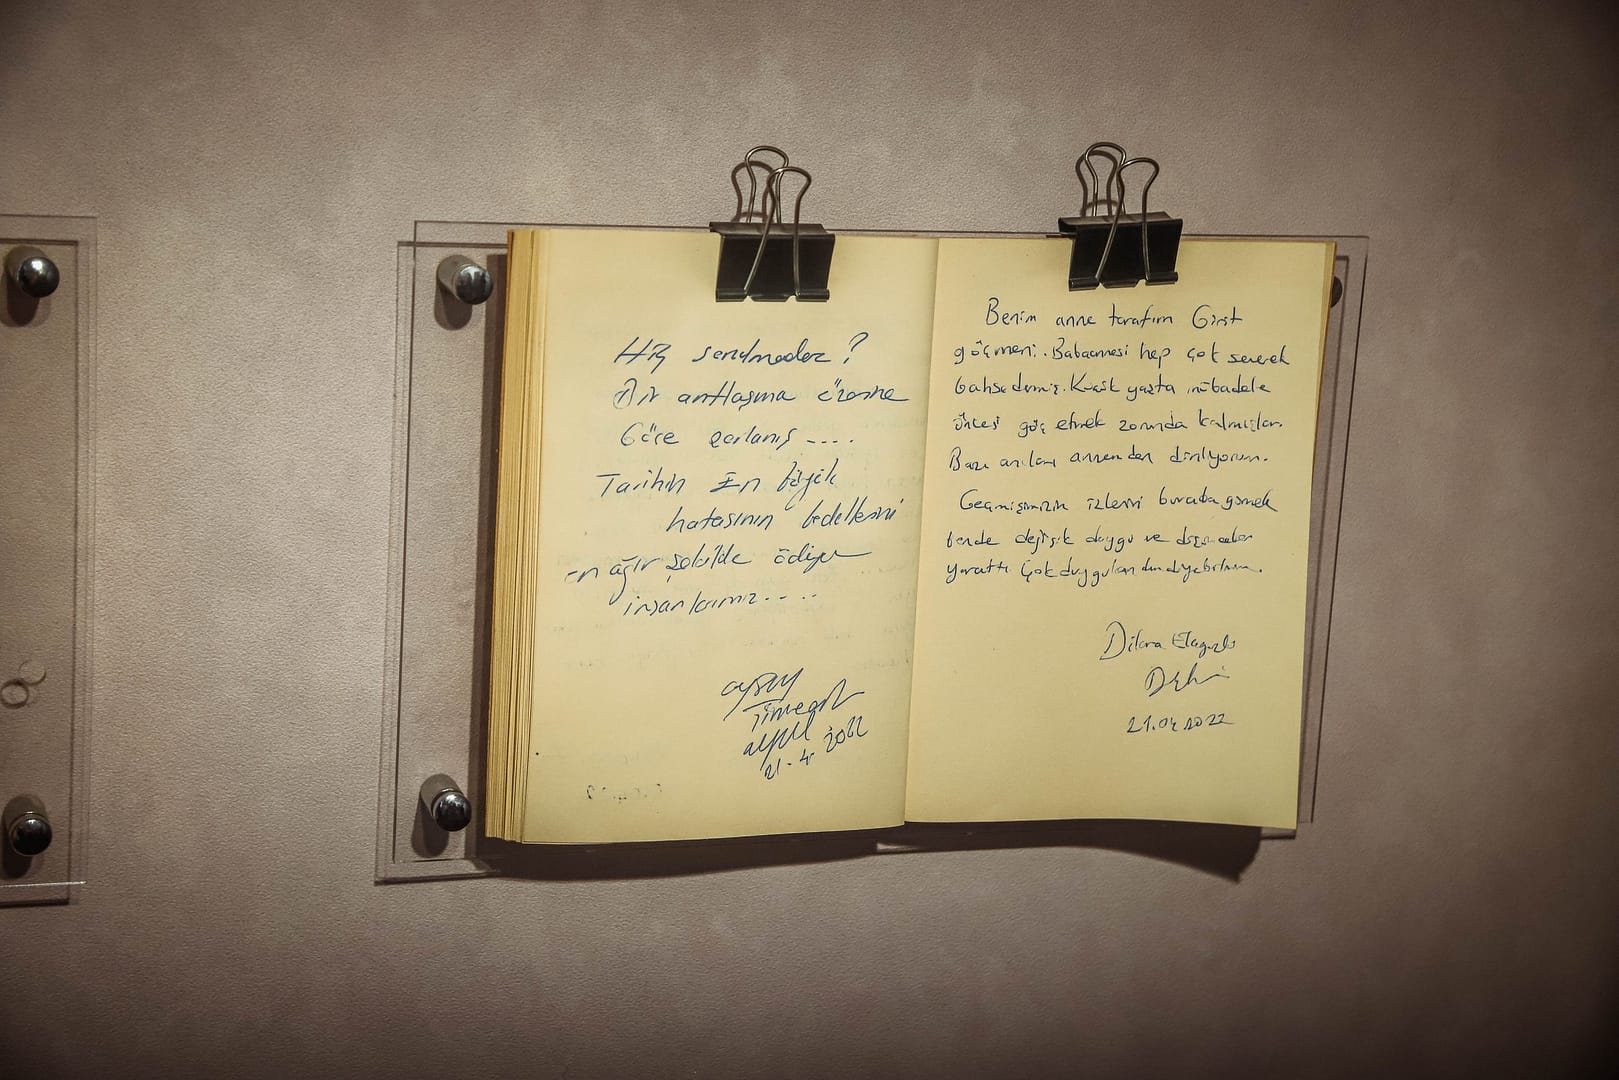 Hiç sorulmadan ?
Bir antlaşma üzerine
Göre zorlanış ....
Tarihin En büyük
hatasının bedellerini
en ağır şekilde ödiyen
insanlarımız.....
21-4-2022
Benim anne tarafım Girit
göçmeni. Babaannesi hep çok severek
bahsedermiş. Küçük yaşta mübadele
öncesi göç etmek zorunda kalmışlar.
Bazı anıları annemden dinliyorum.
Geçmişimizin izlerini burada görmek
bende değişik duygu ve düşünceler
yarattı Çok duygulandım diyebilirim.
Dilara
21.04.2022